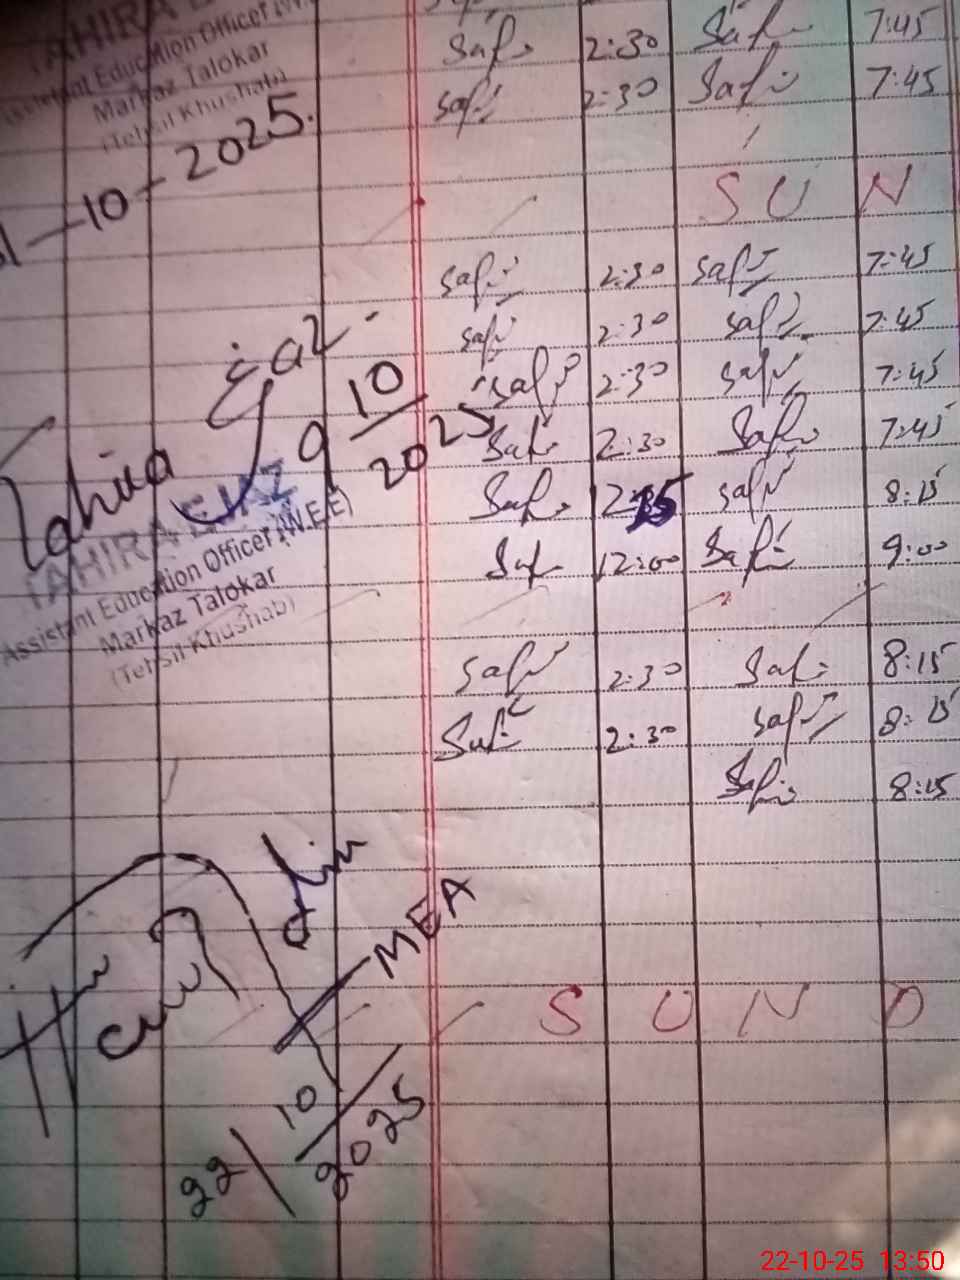 Safi 2:30 Safi 7:45
Safi 2:30 Safi 7:45
Assistant Education Officer (W.E.E)
Markaz Talokar
(Tehsil Khushab)
-10-2025.
S U N
Safi 2:30 Safi 7:45
Safi 2:30 Safi 7:45
Safi 2:30 Safi 7:45
Safi 2:30 Safi 7:45
Safi Safi 8:15
Safi 12:00 Safi 9:00
Tahira Ejaz
9 10
2025
TAHIRA EJAZ
Assistant Education Officer (W.E.E)
Markaz Talokar
(Tehsil Khushab)
Safi 2:30 Safi 8:15
Safi 2:30 Safi 8:15
Safi 8:15
MEA
S U N D
22 10
2025
22-10-25 13:50